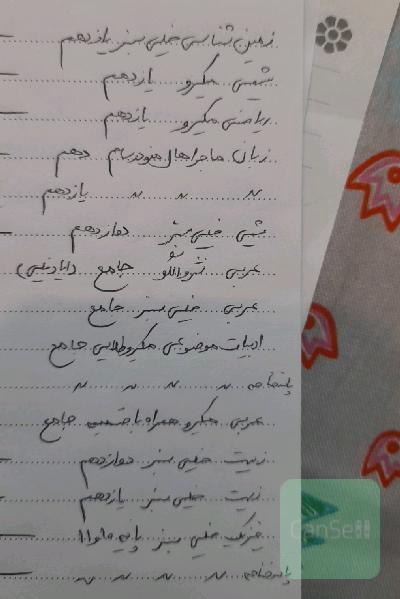 زمین شناسی خیلی سبز یازدهم
شیمی میکرو یازدهم
ریاضی میکرو یازدهم
زبان ماجراهای من و درسام دهم
〃 〃 〃 یازدهم
شیمی خیلی سبز دوازدهم
عربی نشر والگو جامع
عربی خیلی سبز جامع
ادبیات موضوعی میکروطلایی جامع
پاسخنامه 〃 〃 〃 〃
عربی میکرو همراه با ضمیمه جامع
زیست خیلی سبز دوازدهم
زیست خیلی سبز یازدهم
فیزیک خیلی سبز پایه ۱۰ و ۱۱
پاسخنامه 〃 〃 〃 〃
CanSell